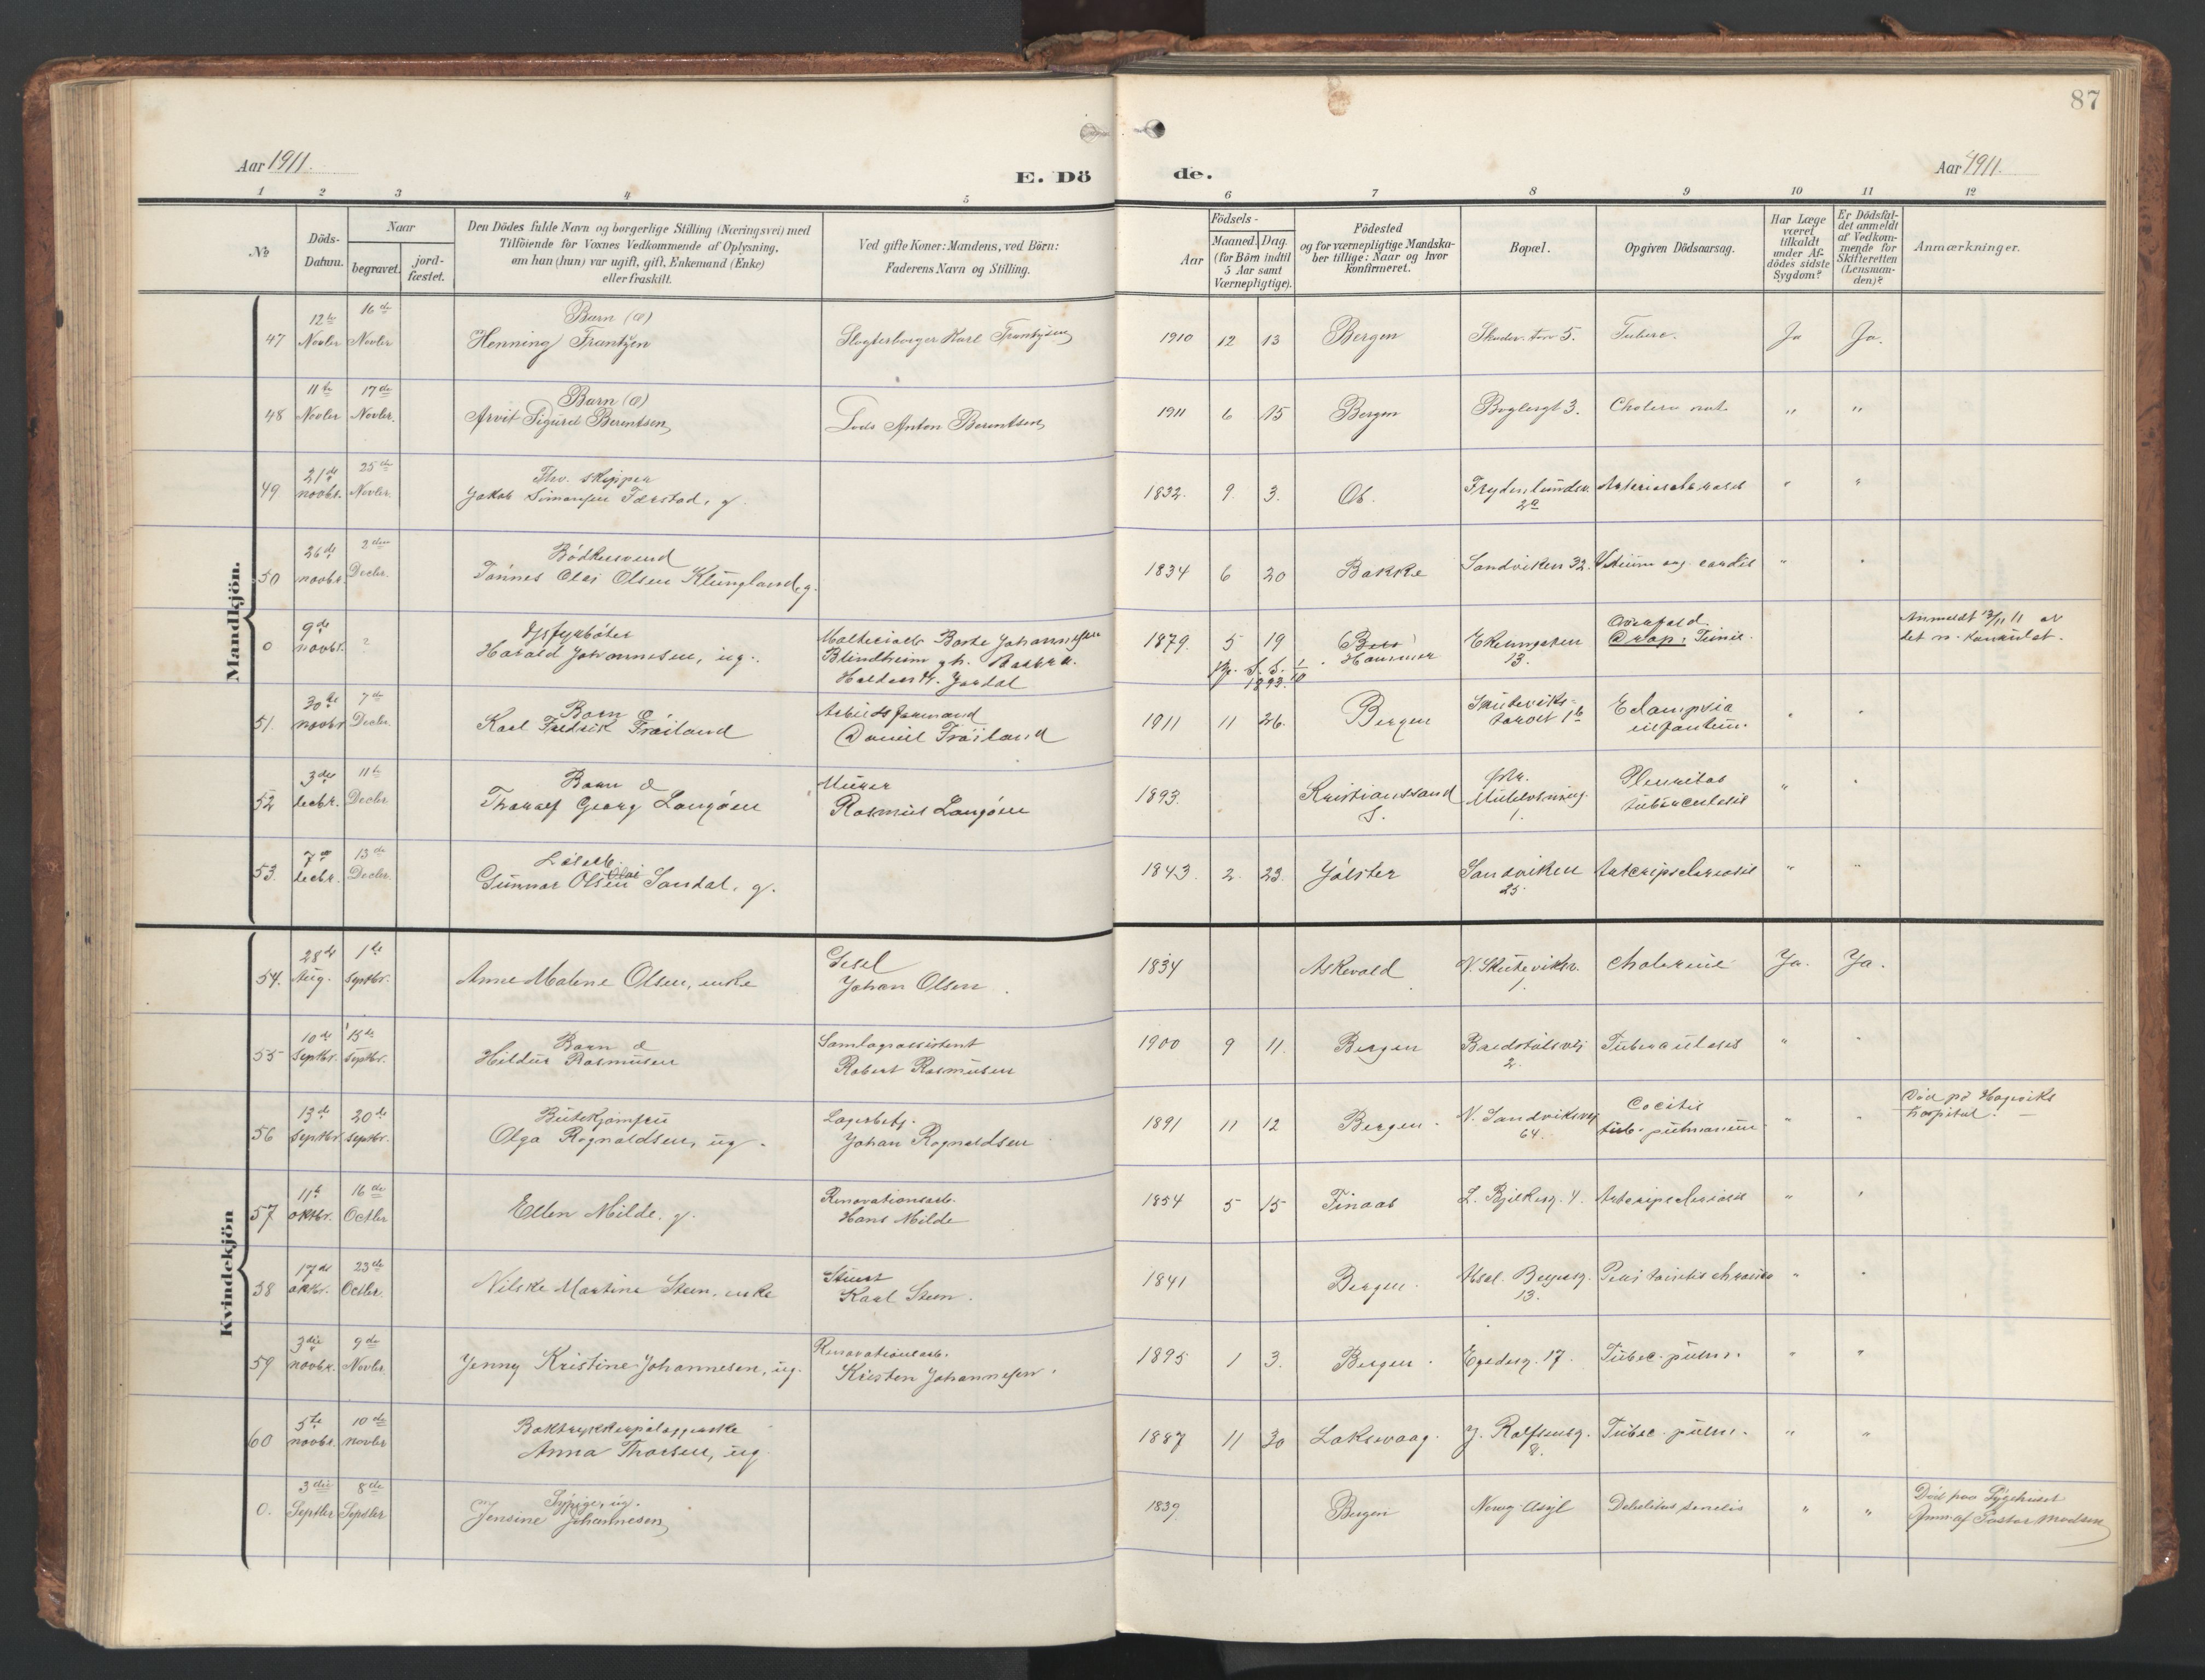 87
Aar 1911.
E. Dö
de.
Aar 1911.
1 2 3 4 5 6 7 8 9 10 11 12
No
Döds-Datum.
Naar
begravet.
jord-fæstet.
Den Dödes fulde Navn og borgerlige Stilling (Næringsvei) med
Tilföiende for Voxnes Vedkommende af Oplysning,
om han (hun) var ugift, gift, Enkemand (Enke)
eller fraskilt.
Ved gifte Koner: Mandens, ved Börn:
Faderens Navn og Stilling.
Födsels-
Aar
Maaned. Dag.
(for Börn indtil
5 Aar samt
Værnepligtige).
Födested
og for værnepligtige Mandska-
ber tillige: Naar og hvor
Konfirmeret.
Bopæl.
Opgiven Dödsaarsag.
Har Læge
været
tilkaldt
under Af-
dödes sidste
Sygdom?
Er Dödsfal-
det anmeldt
af Vedkom-
mende for
Skifteretten
(Lensman-
den)?
Anmærkninger.
Mandkjön.
47 12te Novbr 16de Novbr
Barn (æ)
Henning Frantzen
Karl Frantzen
1910 12 13 Bergen 5. Ja Ja.
48 11te Novbr 17de Novbr.
Barn (æ)
Arvit Sigurd Berentsen
Lods Anton Berentsen
1911 6 15 Bergen 3. Cholera nat. " "
49 21de novbr. 25de Novbr.
Fhv. skipper
Jakob Simonsen g.
1832. 9. 3. Frydenlundsv. 2a Arteriosclerosis " "
50 26de novbr. 2den Decbr.
Bödkersvend
Tönnes Olai Olsen Klungland, g.
1834 6 20 Bakke Sandviken 32. Vitium cordis " "
0 9de novbr. ?
Harald Johannesen, ug.
Johannesen
Blindheim gh.
1879. 5 19 Hammer 13.
Anmeldt 13/11 11 af
det n. konsulat.
51. 30te novbr 7de Decbr.
Barn æ
Karl Fredrik Fröiland
Arbeidsformand
Daniel Fröiland
1911 11 26. Bergen Skuteviks-
torvet 1b Eclampsia
infantum. " "
52 3die decbr. 11te Decbr
Barn æ
Thoralf Georg Langöen
Murer
Rasmus Langöen
1893. Kristianssand
S. 1. Pleuritas
tuberculosis " "
53. 7de decbr. 13de Decbr.
Gunnar Olsen Sandal, g.
1843. 2. 23. Jölster Sandviken
25. Arteriosclerosis " "
Kvindekjön
54. 28de Aug. 1ste Septbr.
Anne Malene Olsen, enke
Johan Olsen
1834 Askevold V. Skuteviksv.
1. Cholerine Ja. Ja.
55 10de Septbr. 15de Septbr.
Barn æ
Hildur Rasmusen
Samlagsassistent
Robert Rasmusen
1900 9 11. Bergen Bredstölsvei
2. Tuberculosis " "
56 13de Septbr. 20de Septbr.
Butikjomfru
Olga Rognaldsen, ug.
Lagerbetj.
Johan Rognaldsen
1891 11 12 Bergen. N. Sandviksvei
64. Cocitis
tub. pulmonum " "
Död på Hageviks
hospital.
57 11te oktbr. 16de Octbr
Ellen Milde. g.
Renovationsarb.
Hans Milde
1854 5 15 Finaas 4. Arteriosclerosis " "
58 17de oktbr. 23de Octbr.
Nilske Martine Steen, enke
Stuert
Karl Steen.
1841 Bergen. 13. " "
59 3die novbr. 9de Novbr.
Jenny Kristine Johannesen, ug.
Renovationsarb.
Kristen Johannesen
1895 1 3. Bergen. Egedesg. 17. Tuberc. pulm. " "
60 5te novbr. 10de novbr
Boktrykkeripålæggerske
Anna Thorsen, ug.
1887 11 30 Laksevaag. J. Rolfsensg.
8. Tuberc. pulm. " "
0. 3die Septbr 8de Septbr
Sypige, ug.
Jensine Johannesen
1839. Bergen Nerveg. Asyl Debilitas senilis " "
Död paa Sygehuset
Anm. af Pastor Madsen